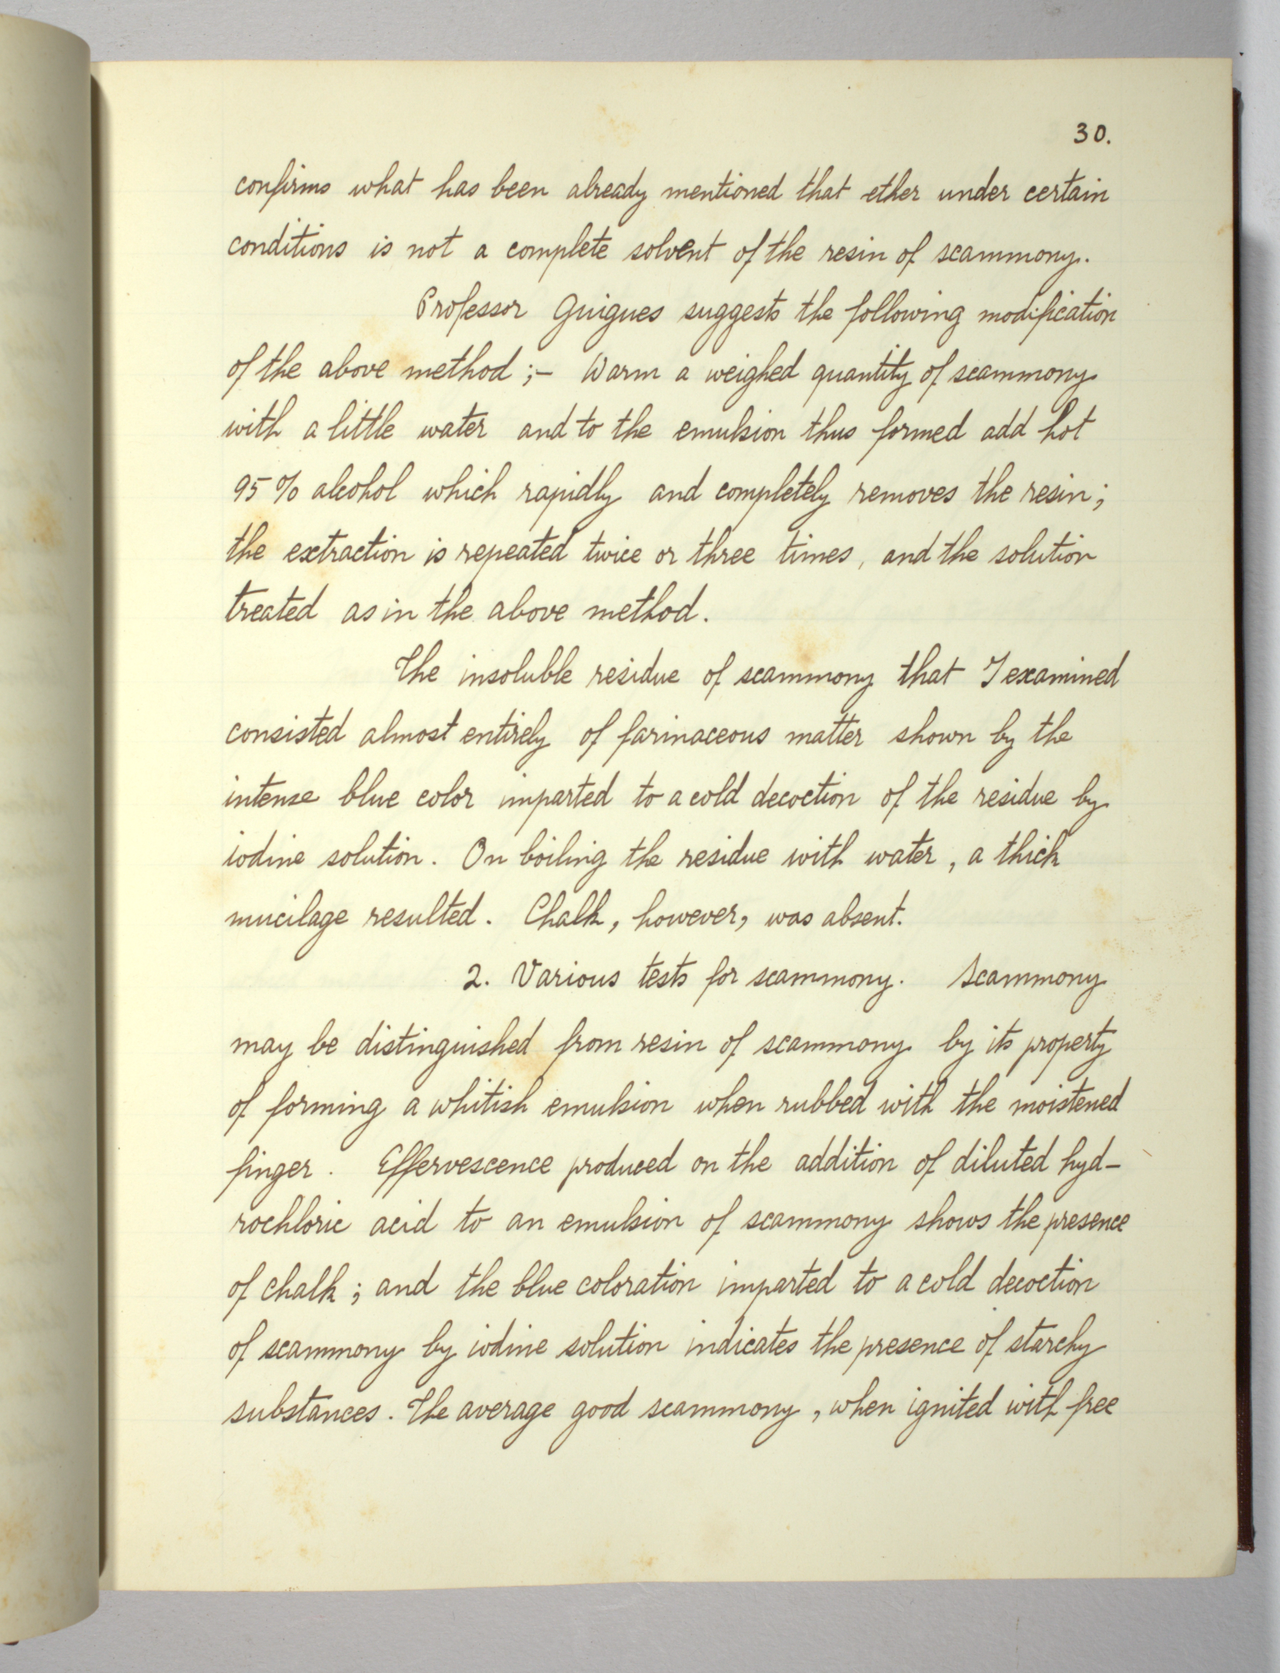 30.
confirms what has been already mentioned that ether under certain
conditions is not a complete solvent of the resin of scammony.
Professor Guigues suggests the following modification
of the above method ;- Warm a weighed quantity of scammony
with a little water and to the emulsion thus formed add hot
95 % alcohol which rapidly and completely removes the resin ;
the extraction is repeated twice or three times, and the solution
treated as in the above method.
The insoluble residue of scammony that I examined
consisted almost entirely of farinaceous matter shown by the
intense blue color imparted to a cold decoction of the residue by
iodine solution. On boiling the residue with water, a thick
mucilage resulted. Chalk, however, was absent.
2. Various tests for scammony. Scammony
may be distinguished from resin of scammony by its property
of forming a whitish emulsion when rubbed with the moistened
finger. Effervescence produced on the addition of diluted hyd-
rochloric acid to an emulsion of scammony shows the presence
of chalk ; and the blue coloration imparted to a cold decoction
of scammony by iodine solution indicates the presence of starchy
substances. The average good scammony, when ignited with free